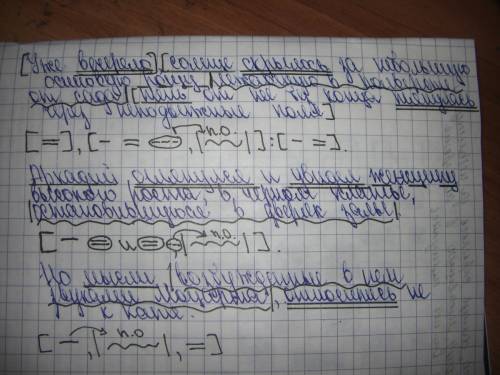 [Уже вечерело] [солнце скрылось за небольшую
осиновую рощу, |лежавшую в полверсте
от сада|] [тень от неё без конца тянулась
через неподвижные поля]
[=], [- = , |п.о.|]:[- =].
Аркадий оглянулся и увидал женщину
высокого роста, в чёрном платье,
|остановившуюся в дверях залы|.
[- = и = , |п.о.|].
Но мысли, |возбуждённые в нём
звуками Моцарта|, относились не
к Кате.
[-, |п.о|, =]